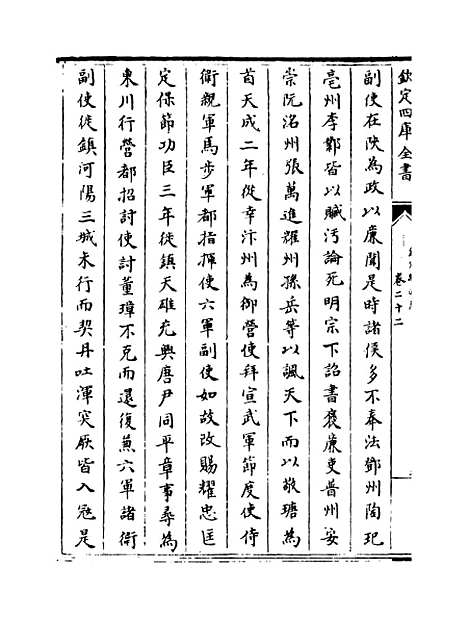 欽定四庫全書
卷二十二
副使在陜為政以廉聞是時諸侯多不奉法鄧州陶玘
亳州李鄴皆以贓汚論死明宗下詔書褒廉吏普州安
崇阮洺州張萬進耀州孫岳等以諷天下而以敬瑭為
首天成二年從幸汴州為御營使拜宣武軍節度使侍
衛親軍馬步軍都指揮使六軍副使如故改賜耀忠匡
定保節功臣三年徙鎮天雄充興唐尹同平章事尋為
東川行營都招討使討董璋不克而還復兼六軍諸衛
副使徙鎮河陽三城未行而契丹吐渾突厥皆入冦是